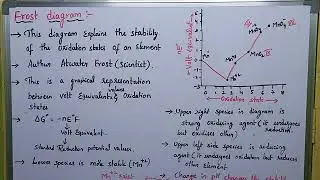 Frost diagram :-
→ This diagram explains the stability
of the oxidation states of an element
→ Author Atwater Frost (Scientist).
→ This is a graphical representation
between volt Equivalent & Oxidation
values
states
→ ΔG° = -nE°F
→ Volt Equivalent.
→ Standard Reduction potential values.
→ Lower species is more stable (Mn⁺²)
nE°
Volt Equivalent
Oxidation state
0 1 2 3 4 5 6 7 8
Mn⁺²
Mn⁺³
MnO₂ IV
→ Upper right species in diagram is
strong oxidising agent (it undergoes
but oxidises other)
reduction.
→ Upper left side species is reducing
agent (it undergoes oxidation but reduces
other element
→ Change in pH changes the